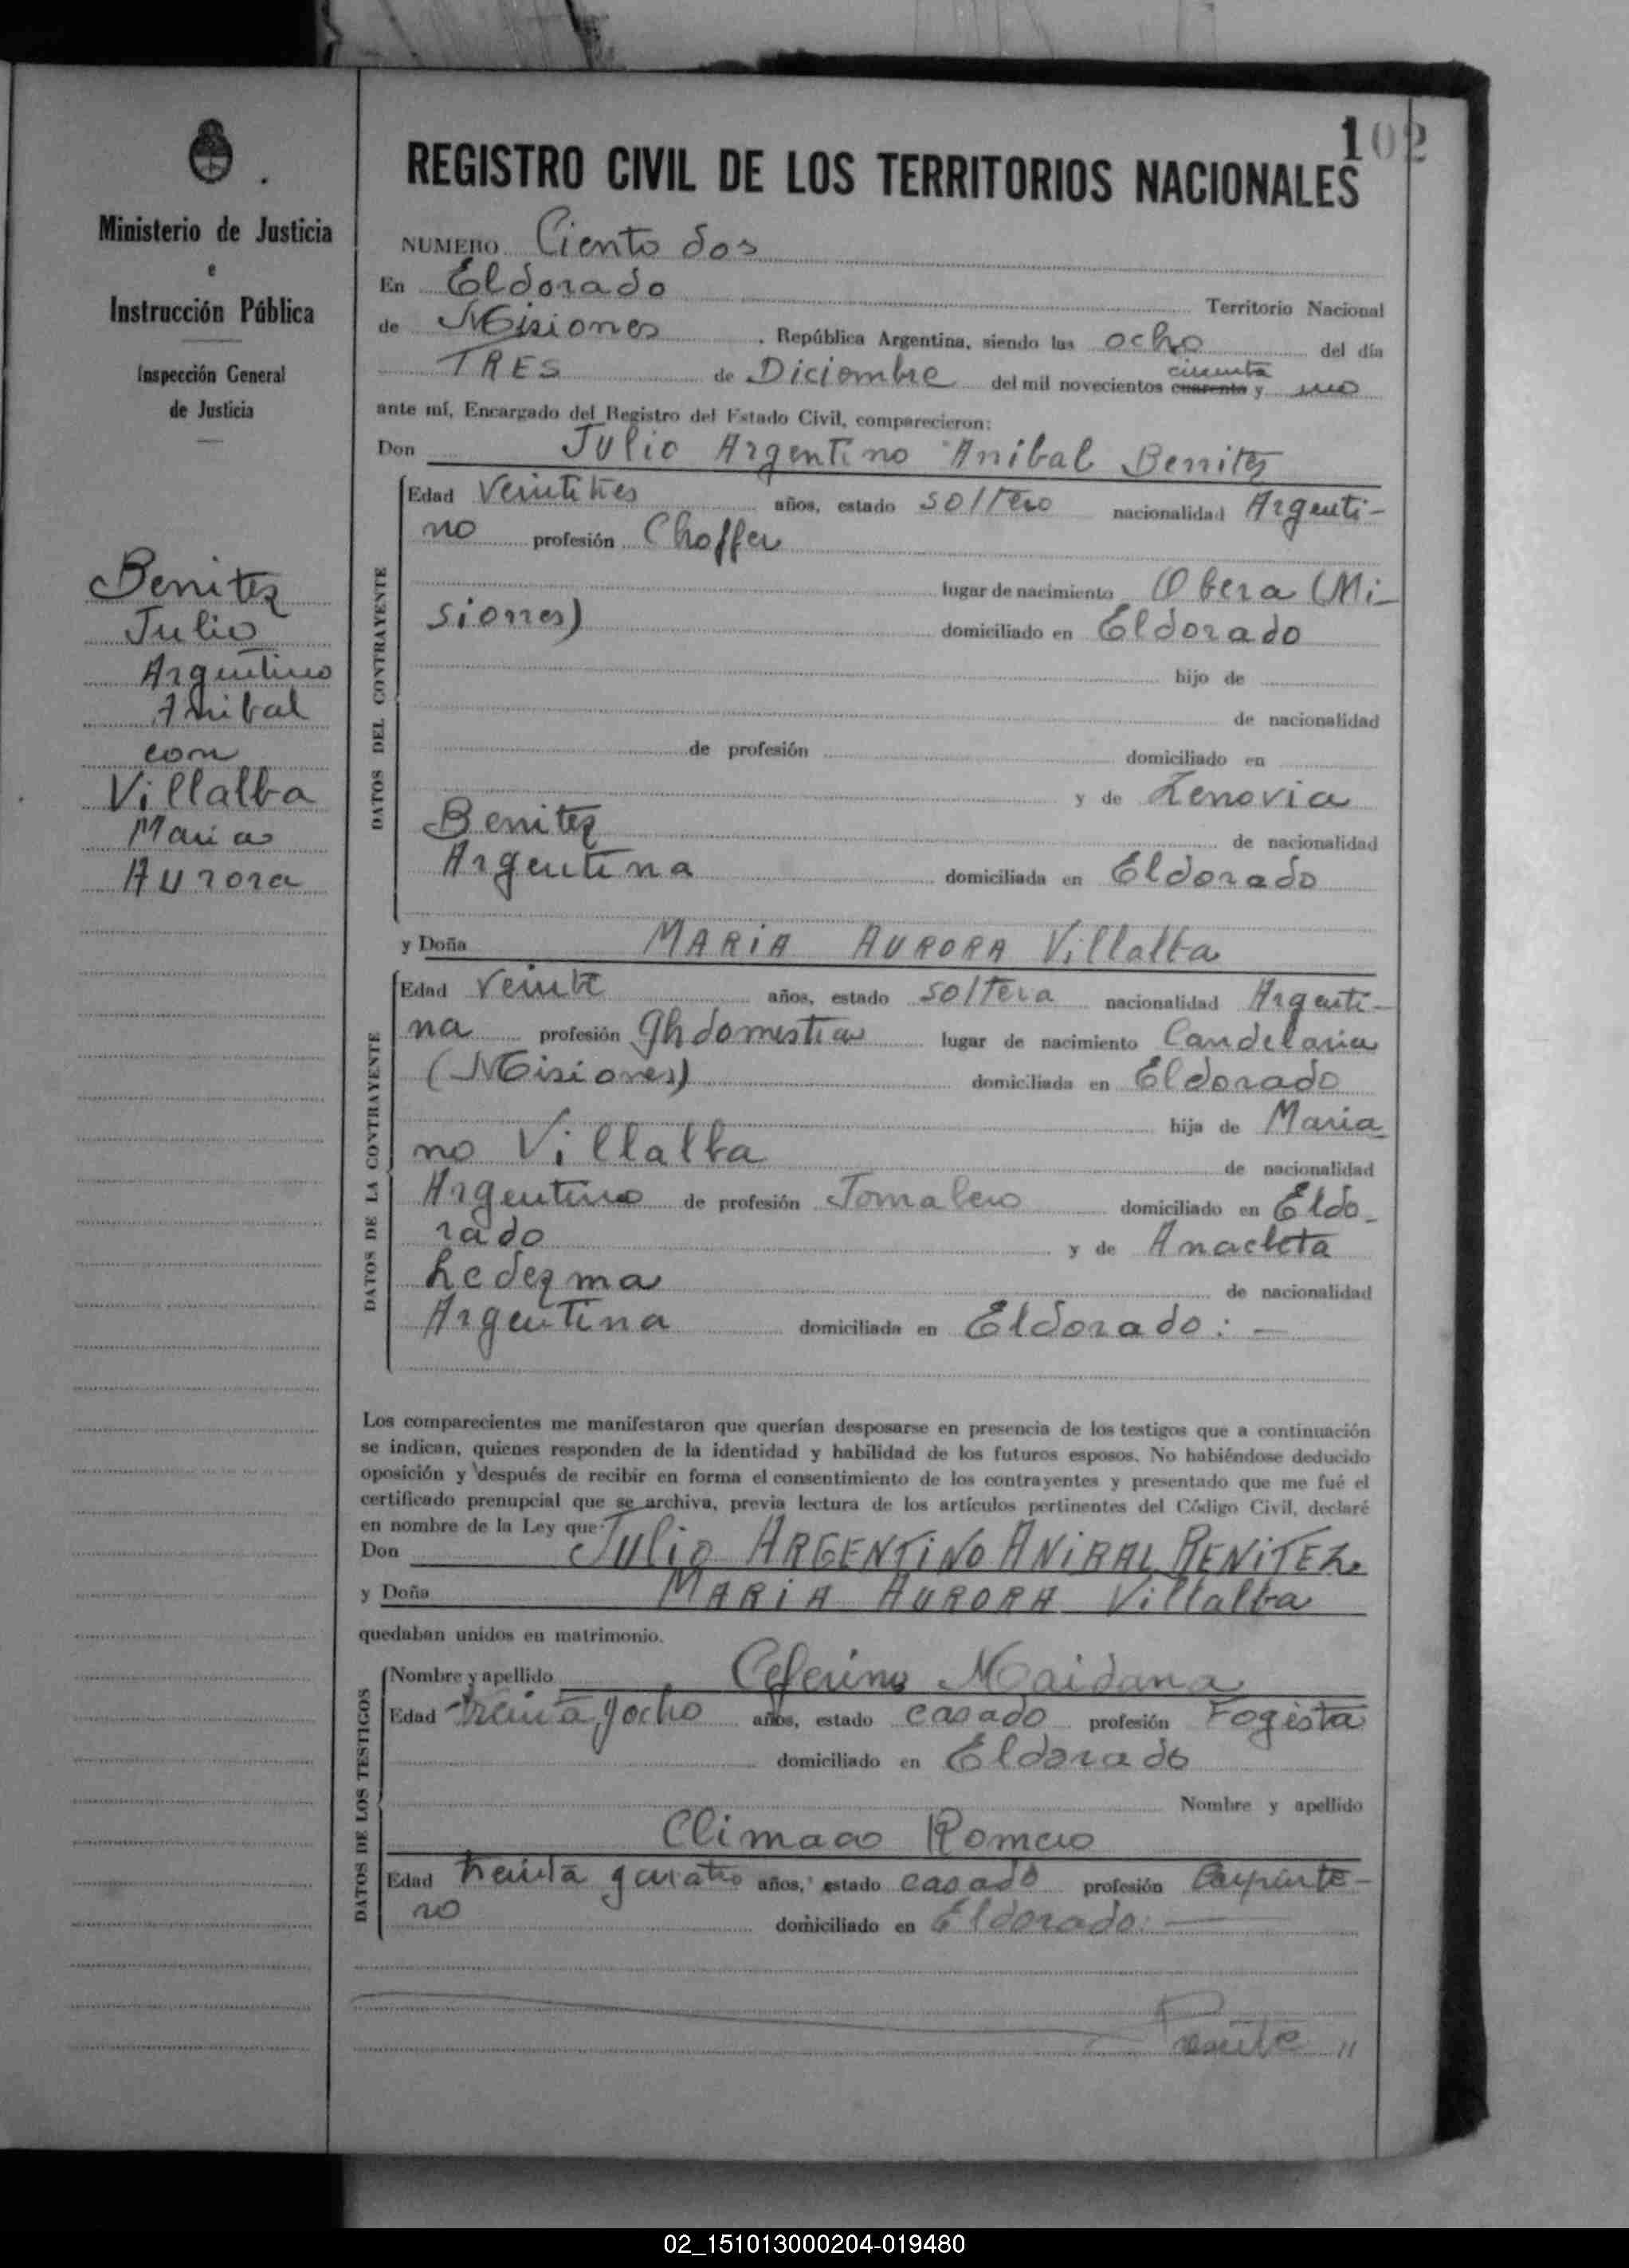 102
REGISTRO CIVIL DE LOS TERRITORIOS NACIONALES
Ministerio de Justicia
e
Instrucción Pública
Inspección General
de Justicia
Benitez
Julio
Argentino
Anibal
con
Villalba
Maria
Aurora
NUMERO Ciento dos
En Eldorado Territorio Nacional
de Misiones, República Argentina, siendo las ocho del día
cincuenta
TRES de Diciembre del mil novecientos cuarenta y uno
ante mí, Encargado del Registro del Estado Civil, comparecieron:
Don Julio Argentino Anibal Benitez
DATOS DEL CONTRAYENTE
Edad veintitres años, estado soltero nacionalidad Argenti-
no profesión Choffer
lugar de nacimiento Obera (Mi-
siones) domiciliado en Eldorado
hijo de
de nacionalidad
de profesión domiciliado en
y de Zenovia
Benitez de nacionalidad
Argentina domiciliada en Eldorado
y Doña MARIA AURORA Villalba
DATOS DE LA CONTRAYENTE
Edad veinte años, estado soltera nacionalidad Argenti-
na profesión domestica lugar de nacimiento Candelaria
(Misiones) domiciliada en Eldorado
hija de Maria
no Villalba de nacionalidad
Argentino de profesión Jornalero domiciliado en Eldo-
rado y de Anacleta
Ledezma de nacionalidad
Argentina domiciliada en Eldorado: —
Los comparecientes me manifestaron que querían desposarse en presencia de los testigos que a continuación
se indican, quienes responden de la identidad y habilidad de los futuros esposos. No habiéndose deducido
oposición y después de recibir en forma el consentimiento de los contrayentes y presentado que me fué el
certificado prenupcial que se archiva, previa lectura de los artículos pertinentes del Código Civil, declaré
en nombre de la Ley que:
Don Julio ARGENTINO ANIBAL BENITEZ
y Doña MARIA AURORA Villalba
quedaban unidos en matrimonio.
DATOS DE LOS TESTIGOS
Nombre y apellido Ceferino Maidana
Edad treinta y ocho años, estado casado profesión Fogista
domiciliado en Eldorado
Nombre y apellido
Climaco Romero
Edad treinta y cuatro años, estado casado profesión Carpinte-
ro domiciliado en Eldorado: —
02_151013000204-019480